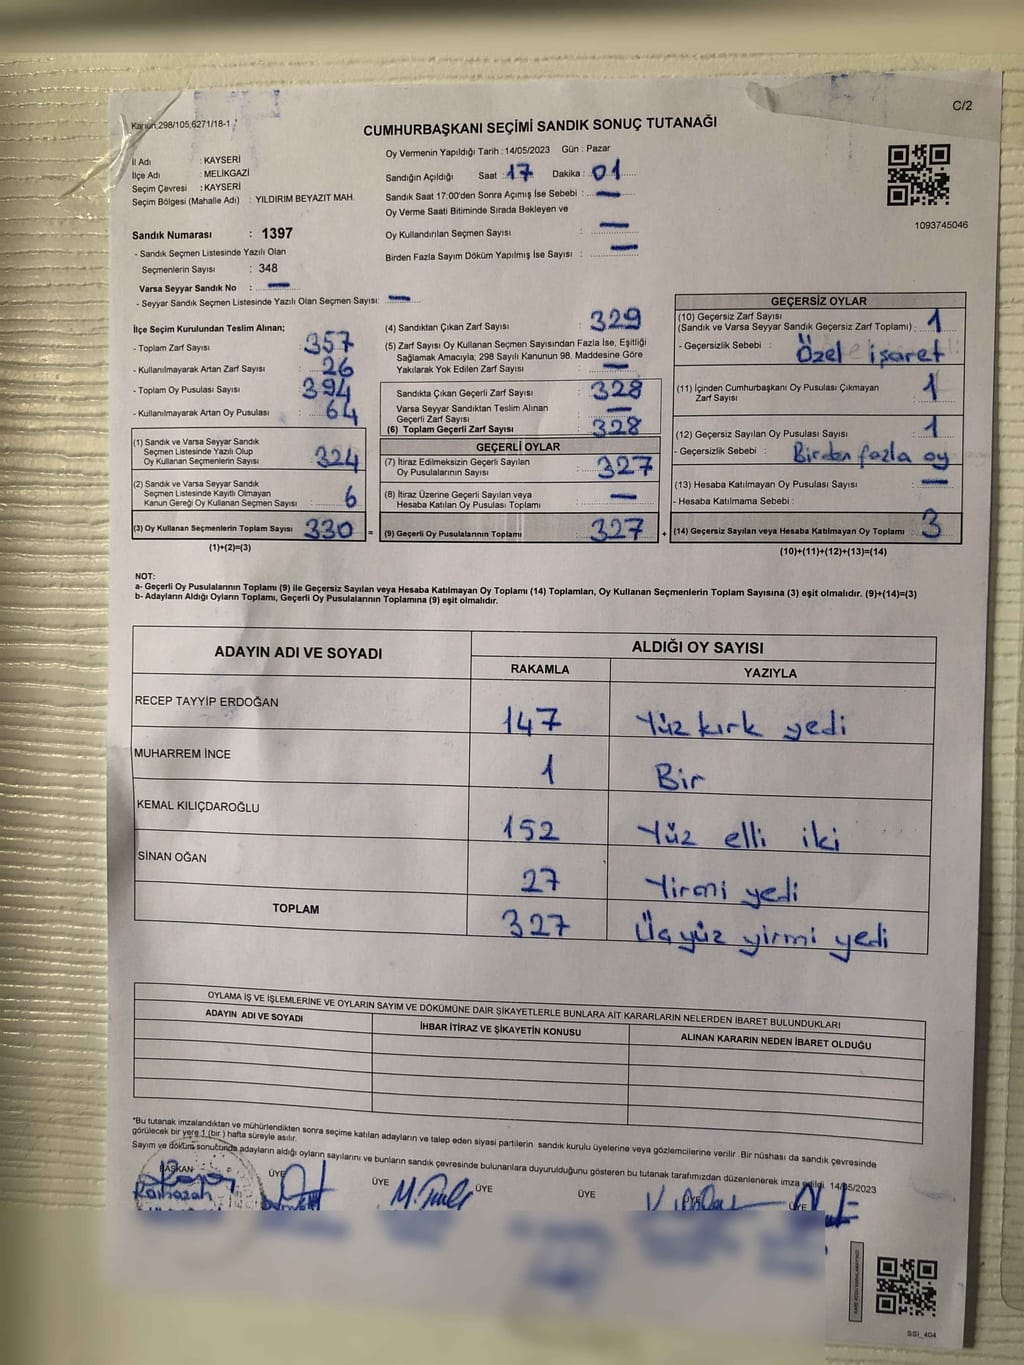 C/2
Kanun 298/105,6271/18-1
CUMHURBAŞKANI SEÇİMİ SANDIK SONUÇ TUTANAĞI
İl Adı : KAYSERİ
İlçe Adı : MELİKGAZİ
Seçim Çevresi : KAYSERİ
Seçim Bölgesi (Mahalle Adı) : YILDIRIM BEYAZIT MAH.
Sandık Numarası : 1397
- Sandık Seçmen Listesinde Yazılı Olan
Seçmenlerin Sayısı : 348
Varsa Seyyar Sandık No : —
- Seyyar Sandık Seçmen Listesinde Yazılı Olan Seçmen Sayısı: —
Oy Vermenin Yapıldığı Tarih : 14/05/2023 Gün : Pazar
Sandığın Açıldığı Saat : 17 Dakika : 01
Sandık Saat 17.00'den Sonra Açımış İse Sebebi : —
Oy Verme Saati Bitiminde Sırada Bekleyen ve
Oy Kullandırılan Seçmen Sayısı : —
Birden Fazla Sayım Döküm Yapılmış İse Sayısı : —
1093745046
İlçe Seçim Kurulundan Teslim Alınan;
- Toplam Zarf Sayısı : 357
- Kullanılmayarak Artan Zarf Sayısı : 26
- Toplam Oy Pusulası Sayısı : 394
- Kullanılmayarak Artan Oy Pusulası : 64
(1) Sandık ve Varsa Seyyar Sandık
Seçmen Listesinde Yazılı Olup
Oy Kullanan Seçmenlerin Sayısı : 324
(2) Sandık ve Varsa Seyyar Sandık
Seçmen Listesinde Kayıtlı Olmayan
Kanun Gereği Oy Kullanan Seçmen Sayısı : 6
(3) Oy Kullanan Seçmenlerin Toplam Sayısı : 330 =
(1)+(2)=(3)
(4) Sandıktan Çıkan Zarf Sayısı : 329
(5) Zarf Sayısı Oy Kullanan Seçmen Sayısından Fazla İse, Eşitliği
Sağlamak Amacıyla; 298 Sayılı Kanunun 98. Maddesine Göre
Yakılarak Yok Edilen Zarf Sayısı : —
Sandıkta Çıkan Geçerli Zarf Sayısı : 328
Varsa Seyyar Sandıktan Teslim Alınan
Geçerli Zarf Sayısı : —
(6) Toplam Geçerli Zarf Sayısı : 328
GEÇERLİ OYLAR
(7) İtiraz Edilmeksizin Geçerli Sayılan
Oy Pusulalarının Sayısı : 327
(8) İtiraz Üzerine Geçerli Sayılan veya
Hesaba Katılan Oy Pusulası Toplamı : —
(9) Geçerli Oy Pusulalarının Toplamı : 327 +
GEÇERSİZ OYLAR
(10) Geçersiz Zarf Sayısı
(Sandık ve Varsa Seyyar Sandık Geçersiz Zarf Toplamı) : 1
- Geçersizlik Sebebi : Özel işaret
(11) İçinden Cumhurbaşkanı Oy Pusulası Çıkmayan
Zarf Sayısı : 1
(12) Geçersiz Sayılan Oy Pusulası Sayısı : 1
- Geçersizlik Sebebi : Birden fazla oy
(13) Hesaba Katılmayan Oy Pusulası Sayısı : —
- Hesaba Katılmama Sebebi :
(14) Geçersiz Sayılan veya Hesaba Katılmayan Oy Toplamı : 3
(10)+(11)+(12)+(13)=(14)
NOT:
a- Geçerli Oy Pusulalarının Toplamı (9) ile Geçersiz Sayılan veya Hesaba Katılmayan Oy Toplamı (14) Toplamları, Oy Kullanan Seçmenlerin Toplam Sayısına (3) eşit olmalıdır. (9)+(14)=(3)
b- Adayların Aldığı Oyların Toplamı, Geçerli Oy Pusulalarının Toplamına (9) eşit olmalıdır.
ADAYIN ADI VE SOYADI ALDIĞI OY SAYISI
RAKAMLA YAZIYLA
RECEP TAYYİP ERDOĞAN 147 Yüz kırk yedi
MUHARREM İNCE 1 Bir
KEMAL KILIÇDAROĞLU 152 Yüz elli iki
SİNAN OĞAN 27 Yirmi yedi
TOPLAM 327 Üçyüz yirmi yedi
OYLAMA İŞ VE İŞLEMLERİNE VE OYLARIN SAYIM VE DÖKÜMÜNE DAİR ŞİKAYETLERLE BUNLARA AİT KARARLARIN NELERDEN İBARET BULUNDUKLARI
ADAYIN ADI VE SOYADI İHBAR İTİRAZ VE ŞİKAYETİN KONUSU ALINAN KARARIN NEDEN İBARET OLDUĞU
*Bu tutanak imzalandıktan ve mühürlendikten sonra seçime katılan adayların ve talep eden siyasi partilerin sandık kurulu üyelerine veya gözlemcilerine verilir. Bir nüshası da sandık çevresinde
görülecek bir yere 1 (bir) hafta süreyle asılır.
Sayım ve döküm sonucunda adayların aldığı oyların sayılarını ve bunların sandık çevresinde bulunanlara duyurulduğunu gösteren bu tutanak tarafımızdan düzenlenerek imza edildi. 14/05/2023
BAŞKAN ÜYE ÜYE ÜYE ÜYE ÜYE ÜYE
Ramazan
SSİ_404